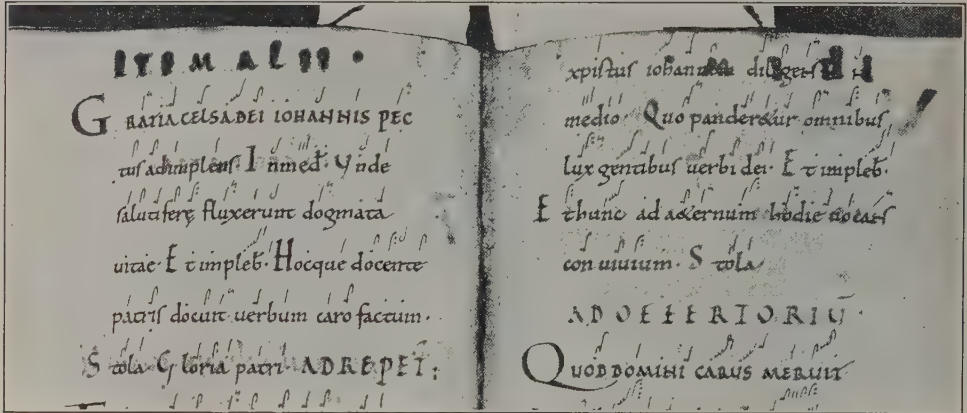 ITEM ALII ·
GRATIA CELSA DEI IOHANNIS PEC
tus adimplens· Inmed̄· Vnde
salutiferę fluxerunt dogmata
uitae· Et impleb̄· Hocque docente
patris docuit uerbum caro factum·
Stola· Gloria patri· AD REPET̄:
xpistus iohannem diligens
medio· Quo panderetur omnibus
lux gentibus uerbi dei· Et impleb̄·
Et hunc ad aeternum hodie
conuiuium· Stola
AD OFFERTORIŪ·
QUOD DOMINI CARUS MERUIT